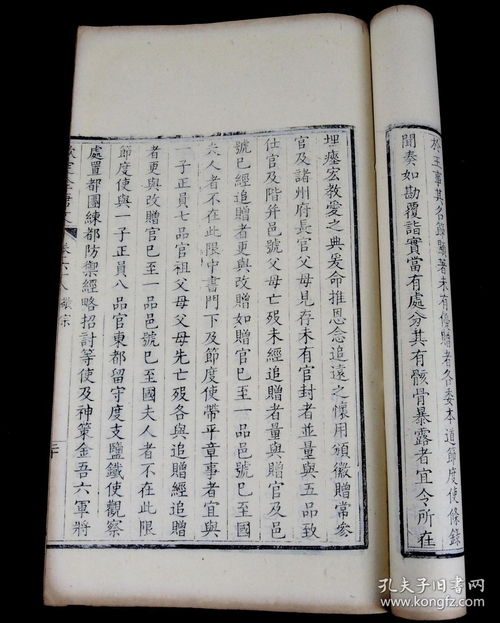 於王事其名跡顯著未有優贈者各委本道節度使條錄
聞奏如勘覆詣實當有處分其有骸骨暴露者宜令所在
埋瘞宏教愛之典爰命推恩念追遠之懷用頒徽贈常參
官及諸州府長官父母見存未有官封者並量與五品致
仕官及階并邑號父母亡歿未經追贈者量與贈官及邑
號已經追贈者更與改贈如贈官已至一品邑號已至國
夫人者不在此限中書門下及節度使帶平章事者宜與
一子正員七品官祖父母父母先亡歿各與追贈經追贈
者更與改贈官已至一品邑號已至國夫人者不在此限
節度使與一子正員八品官東都留守度支鹽鐵使觀察
處置都團練都防禦經略招討等使及神策金吾六軍將
欽定全唐文 卷六十八 敬宗 二十
孔夫子旧书网
www.kongfz.com